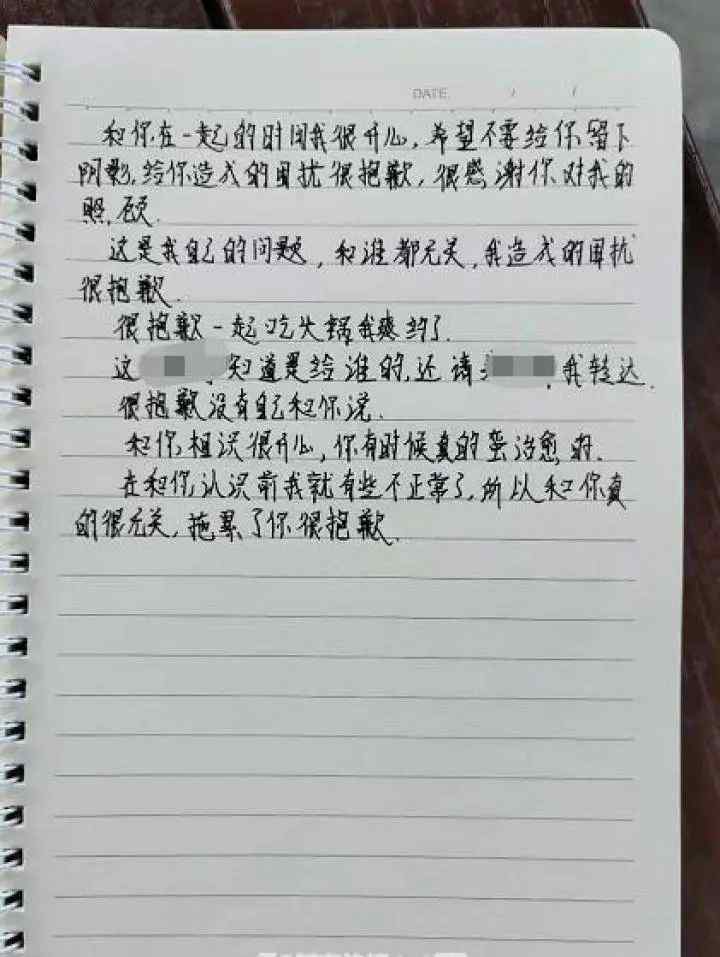 DATE / /
和你在一起的时间我很开心，希望不要给你留下
阴影，给你造成的困扰很抱歉，很感谢你对我的
照顾.
这是我自己的问题，和谁都无关，我造成的困扰
很抱歉.
很抱歉一起吃火锅我爽约了.
这 知道是给谁的，还请 我转达.
很抱歉没有自己和你说.
和你相识很开心，你有时候真的蛮治愈的.
在和你认识前我就有些不正常了，所以和你真
的很无关，拖累了你很抱歉.